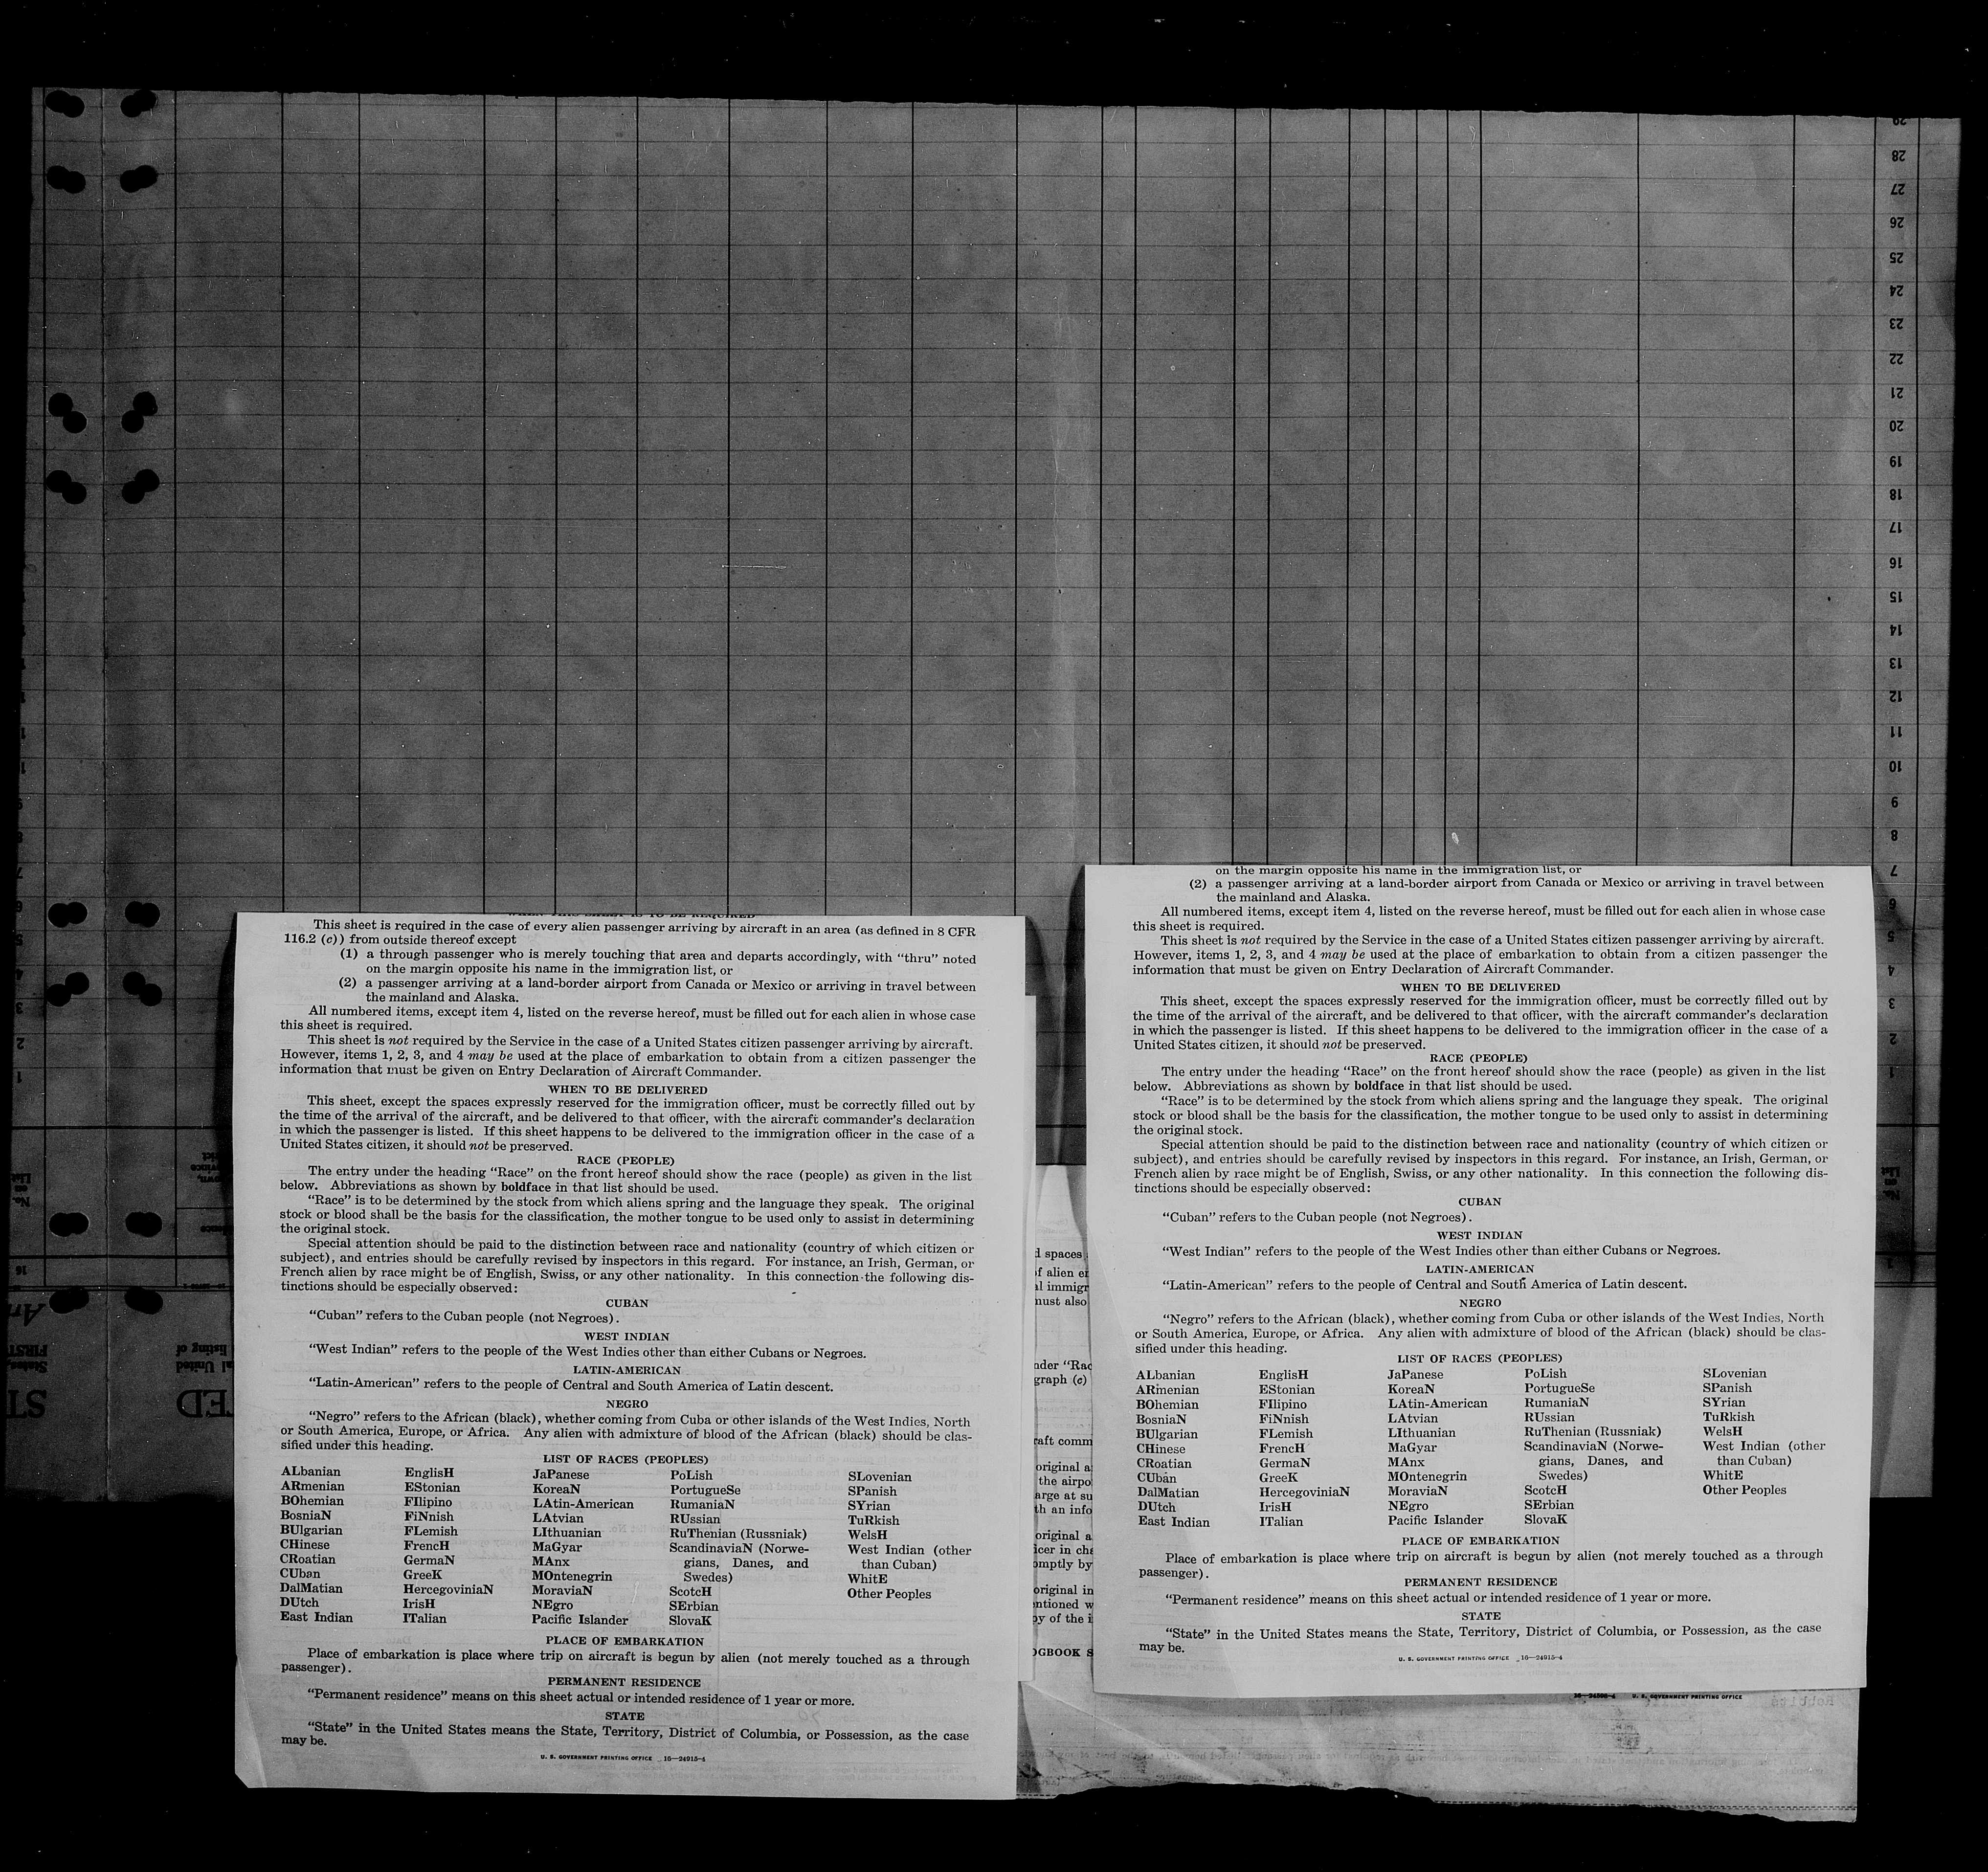 WHEN THIS SHEET IS TO BE REQUIRED
This sheet is required in the case of every alien passenger arriving by aircraft in an area (as defined in 8 CFR
116.2 (c)) from outside thereof except
(1) a through passenger who is merely touching that area and departs accordingly, with “thru” noted
on the margin opposite his name in the immigration list, or
(2) a passenger arriving at a land-border airport from Canada or Mexico or arriving in travel between
the mainland and Alaska.
All numbered items, except item 4, listed on the reverse hereof, must be filled out for each alien in whose case
this sheet is required.
This sheet is not required by the Service in the case of a United States citizen passenger arriving by aircraft.
However, items 1, 2, 3, and 4 may be used at the place of embarkation to obtain from a citizen passenger the
information that must be given on Entry Declaration of Aircraft Commander.
WHEN TO BE DELIVERED
This sheet, except the spaces expressly reserved for the immigration officer, must be correctly filled out by
the time of the arrival of the aircraft, and be delivered to that officer, with the aircraft commander’s declaration
in which the passenger is listed. If this sheet happens to be delivered to the immigration officer in the case of a
United States citizen, it should not be preserved.
RACE (PEOPLE)
The entry under the heading “Race” on the front hereof should show the race (people) as given in the list
below. Abbreviations as shown by boldface in that list should be used.
“Race” is to be determined by the stock from which aliens spring and the language they speak. The original
stock or blood shall be the basis for the classification, the mother tongue to be used only to assist in determining
the original stock.
Special attention should be paid to the distinction between race and nationality (country of which citizen or
subject), and entries should be carefully revised by inspectors in this regard. For instance, an Irish, German, or
French alien by race might be of English, Swiss, or any other nationality. In this connection the following dis-
tinctions should be especially observed:
CUBAN
“Cuban” refers to the Cuban people (not Negroes).
WEST INDIAN
“West Indian” refers to the people of the West Indies other than either Cubans or Negroes.
LATIN-AMERICAN
“Latin-American” refers to the people of Central and South America of Latin descent.
NEGRO
“Negro” refers to the African (black), whether coming from Cuba or other islands of the West Indies, North
or South America, Europe, or Africa. Any alien with admixture of blood of the African (black) should be clas-
sified under this heading.
LIST OF RACES (PEOPLES)
ALbanian EnglisH JaPanese PoLish SLovenian
ARmenian EStonian KoreaN PortugueSe SPanish
BOhemian FIlipino LAtin-American RumaniaN SYrian
BosniaN FiNnish LAtvian RUssian TuRkish
BUlgarian FLemish LIthuanian RuThenian (Russniak) WelsH
CHinese FrencH MaGyar ScandinaviaN (Norwe- West Indian (other
CRoatian GermaN MAnx gians, Danes, and than Cuban)
CUban GreeK MOntenegrin Swedes) WhitE
DalMatian HercegoviniaN MoraviaN ScotcH Other Peoples
DUtch IrisH NEgro SErbian
East Indian ITalian Pacific Islander SlovaK
PLACE OF EMBARKATION
Place of embarkation is place where trip on aircraft is begun by alien (not merely touched as a through
passenger).
PERMANENT RESIDENCE
“Permanent residence” means on this sheet actual or intended residence of 1 year or more.
STATE
“State” in the United States means the State, Territory, District of Columbia, or Possession, as the case
may be.
U. S. GOVERNMENT PRINTING OFFICE 16—24915-4
on the margin opposite his name in the immigration list, or
(2) a passenger arriving at a land-border airport from Canada or Mexico or arriving in travel between
the mainland and Alaska.
All numbered items, except item 4, listed on the reverse hereof, must be filled out for each alien in whose case
this sheet is required.
This sheet is not required by the Service in the case of a United States citizen passenger arriving by aircraft.
However, items 1, 2, 3, and 4 may be used at the place of embarkation to obtain from a citizen passenger the
information that must be given on Entry Declaration of Aircraft Commander.
WHEN TO BE DELIVERED
This sheet, except the spaces expressly reserved for the immigration officer, must be correctly filled out by
the time of the arrival of the aircraft, and be delivered to that officer, with the aircraft commander’s declaration
in which the passenger is listed. If this sheet happens to be delivered to the immigration officer in the case of a
United States citizen, it should not be preserved.
RACE (PEOPLE)
The entry under the heading “Race” on the front hereof should show the race (people) as given in the list
below. Abbreviations as shown by boldface in that list should be used.
“Race” is to be determined by the stock from which aliens spring and the language they speak. The original
stock or blood shall be the basis for the classification, the mother tongue to be used only to assist in determining
the original stock.
Special attention should be paid to the distinction between race and nationality (country of which citizen or
subject), and entries should be carefully revised by inspectors in this regard. For instance, an Irish, German, or
French alien by race might be of English, Swiss, or any other nationality. In this connection the following dis-
tinctions should be especially observed:
CUBAN
“Cuban” refers to the Cuban people (not Negroes).
WEST INDIAN
“West Indian” refers to the people of the West Indies other than either Cubans or Negroes.
LATIN-AMERICAN
“Latin-American” refers to the people of Central and South America of Latin descent.
NEGRO
“Negro” refers to the African (black), whether coming from Cuba or other islands of the West Indies, North
or South America, Europe, or Africa. Any alien with admixture of blood of the African (black) should be clas-
sified under this heading.
LIST OF RACES (PEOPLES)
ALbanian EnglisH JaPanese PoLish SLovenian
ARmenian EStonian KoreaN PortugueSe SPanish
BOhemian FIlipino LAtin-American RumaniaN SYrian
BosniaN FiNnish LAtvian RUssian TuRkish
BUlgarian FLemish LIthuanian RuThenian (Russniak) WelsH
CHinese FrencH MaGyar ScandinaviaN (Norwe- West Indian (other
CRoatian GermaN MAnx gians, Danes, and than Cuban)
CUban GreeK MOntenegrin Swedes) WhitE
DalMatian HercegoviniaN MoraviaN ScotcH Other Peoples
DUtch IrisH NEgro SErbian
East Indian ITalian Pacific Islander SlovaK
PLACE OF EMBARKATION
Place of embarkation is place where trip on aircraft is begun by alien (not merely touched as a through
passenger).
PERMANENT RESIDENCE
“Permanent residence” means on this sheet actual or intended residence of 1 year or more.
STATE
“State” in the United States means the State, Territory, District of Columbia, or Possession, as the case
may be.
U. S. GOVERNMENT PRINTING OFFICE 16—24915-4
29
28
27
26
25
24
23
22
21
20
19
18
17
16
15
14
13
12
11
10
9
8
7
6
5
4
3
2
1
spaces
of alien
immigr
must also
under “Rac
graph (c)
raft comm
original a
the airpo
arge at su
th an info
original a
icer in cha
omptly by
original in
ntioned w
py of the i
OGBOOK S
U. S. GOVERNMENT PRINTING OFFICE